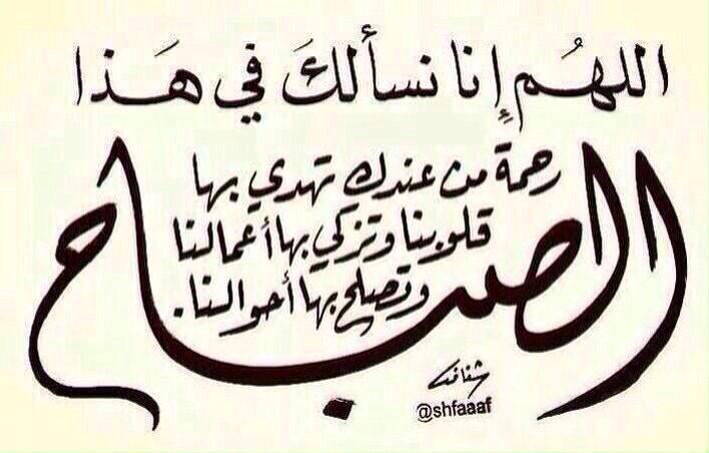 اللهُم إِنا نسألكَ في هَذا
الصباح
رحمة من عندك تهدي بها
قلوبنا وتزكي بها أعمالنا
وتصلح بها أحوالنا.
شفاف
@shfaaaf